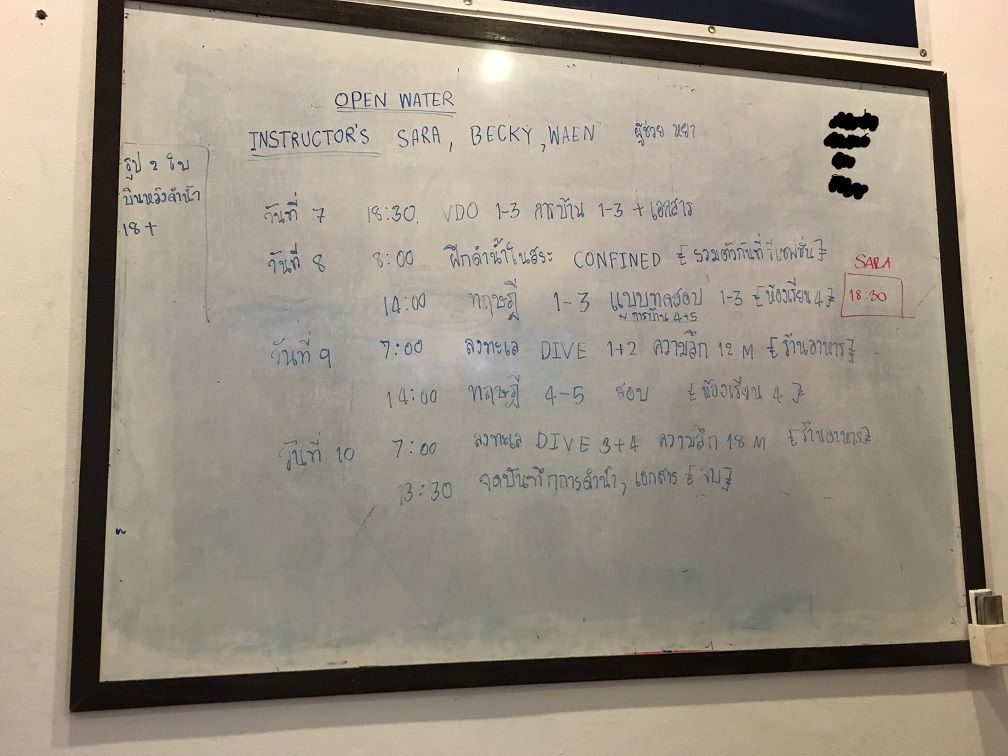 OPEN WATER
INSTRUCTOR'S SARA, BECKY, WAEN ผู้ช่วย หยา
รูป 2 ใบ
บินหลังดำน้ำ
18+
วันที่ 7 18:30. VDO 1-3 การบ้าน 1-3 + เอกสาร
วันที่ 8 8:00 ฝึกดำน้ำในสระ CONFINED {รวมตัวกันที่รีเซฟชั่น}
14:00 ทฤษฎี 1-3 แบบทดสอบ 1-3 {ห้องเรียน 4}
การบ้าน 4+5
SARA
18:30
วันที่ 9 7:00 ลงทะเล DIVE 1+2 ความลึก 12 M {ร้านอาหาร}
14:00 ทฤษฎี 4-5 สอบ {ห้องเรียน 4}
วันที่ 10 7:00 ลงทะเล DIVE 3+4 ความลึก 18 M {ร้านอาหาร}
13:30 จดบันทึกการดำน้ำ, เอกสาร {จบ}